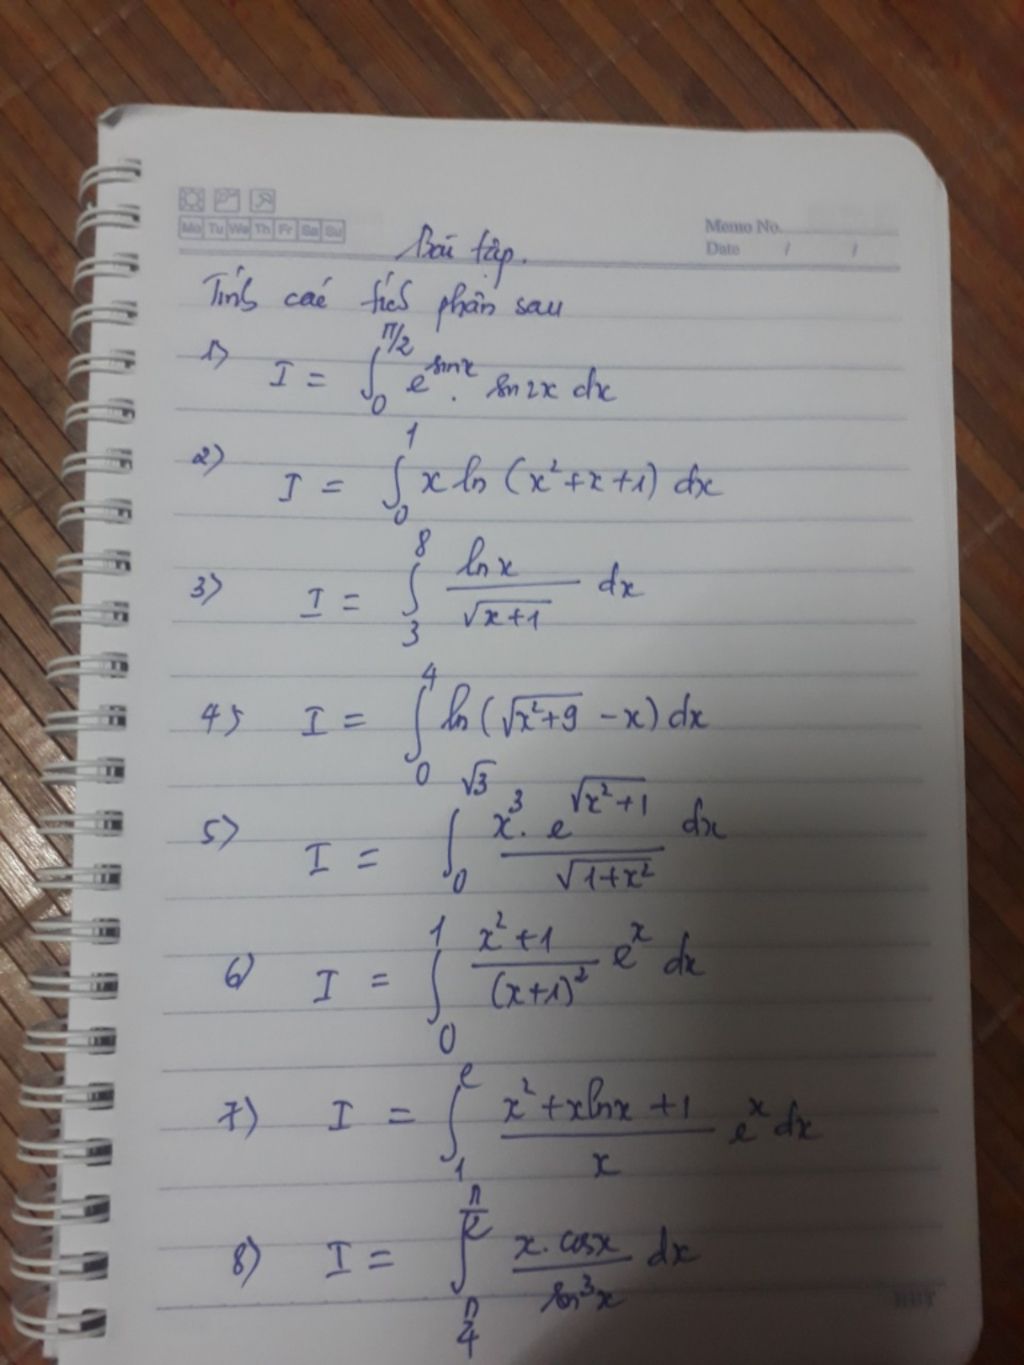 Mo Tu We Th Fr Sa Su
Memo No.
Date / /
Bài tập.
Tính các tích phân sau
1) I = ∫₀^{π/2} e^{sinx} . sin2x dx
2) I = ∫₀^{1} x ln (x²+x+1) dx
3) I = ∫₃^{8} lnx / √(x+1) dx
4) I = ∫₀^{4} ln(√(x²+9) - x) dx
5) I = ∫₀^{√3} x³. e^{√(x²+1)} / √(1+x²) dx
6) I = ∫₀^{1} (x²+1) / (x+1)² e^x dx
7) I = ∫₁^{e} (x²+xlnx+1) / x e^x dx
8) I = ∫_{π/4}^{π/2} x.cosx / sin³x dx